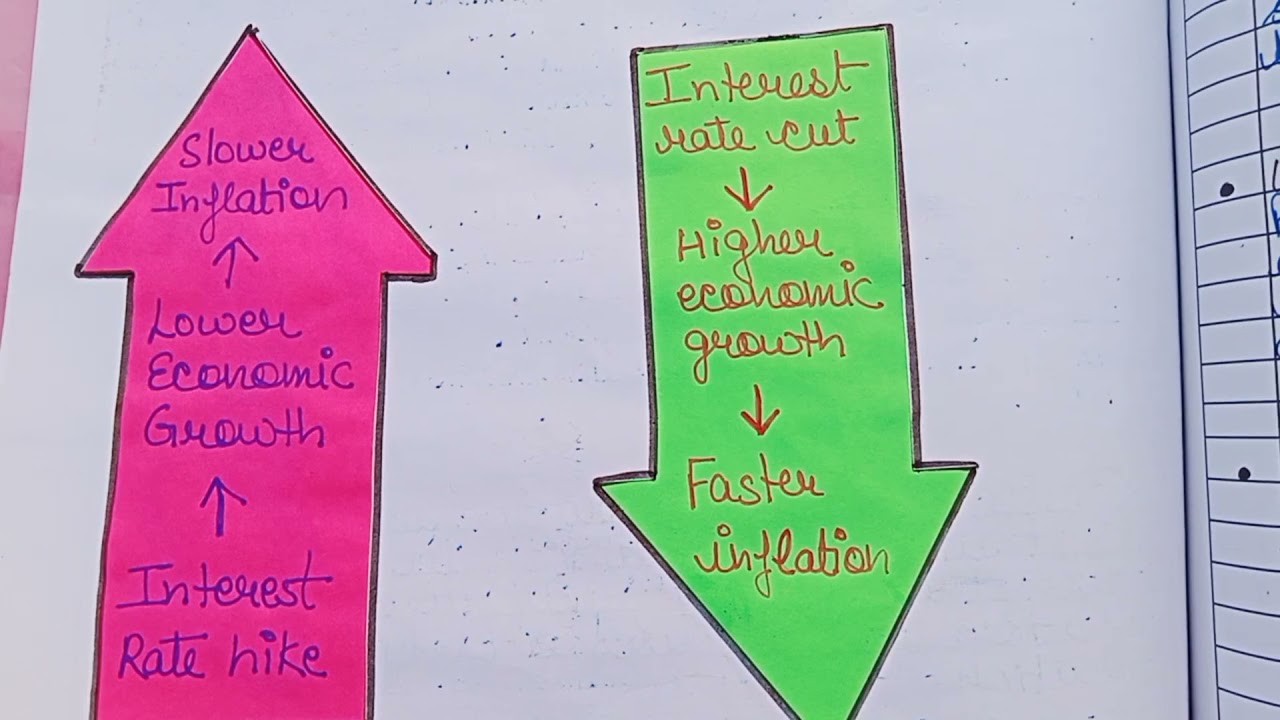 Slower
Inflation
↑
Lower
Economic
Growth
↑
Interest
Rate hike
Interest
rate cut
↓
Higher
economic
growth
↓
Faster
inflation